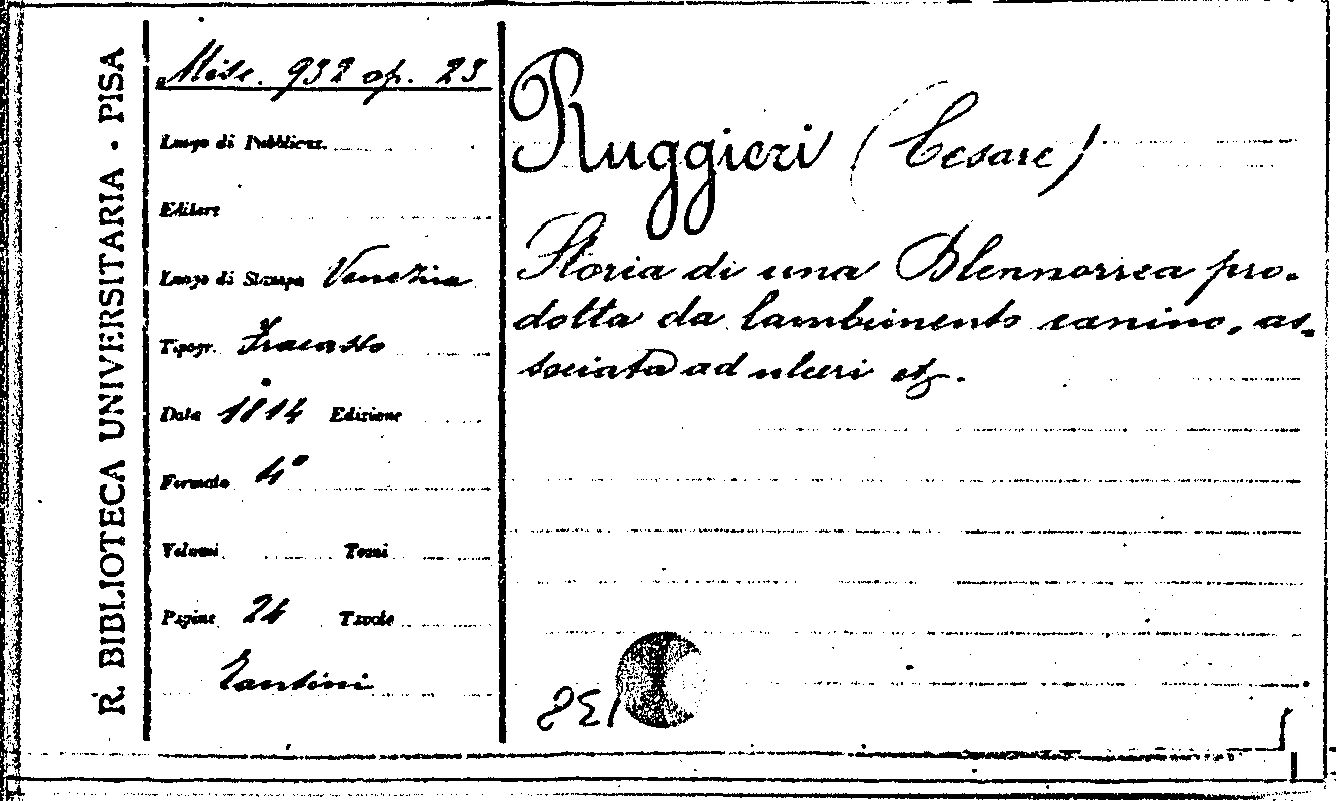 R. BIBLIOTECA UNIVERSITARIA · PISA
Misc. 932 op. 23
Luogo di Pubblicaz.
Editore
Luogo di Stampa Venezia
Tipogr. Fracasso
Data 1814 Edizione
Formato 4°
Volumi Tomi
Pagine 24 Tavole
Ruggieri (Cesare)
Storia di una Blennorrea pro-
dotta da lambimento canino, as-
sociata ad ulceri etc.